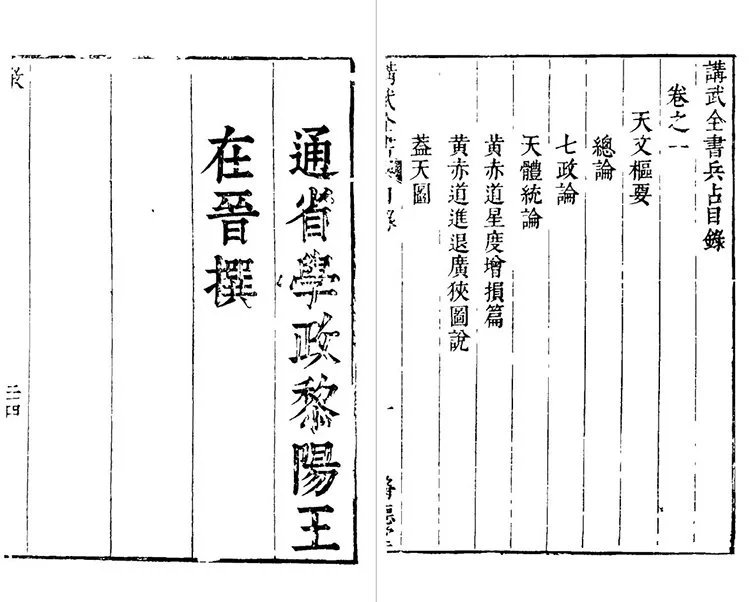 講武全書兵占目錄
卷之一
天文樞要
總論
七政論
天體統論
黃赤道星度增損篇
黃赤道進退廣狹圖說
蓋天圖
通省學政黎陽王
在晉撰
三四